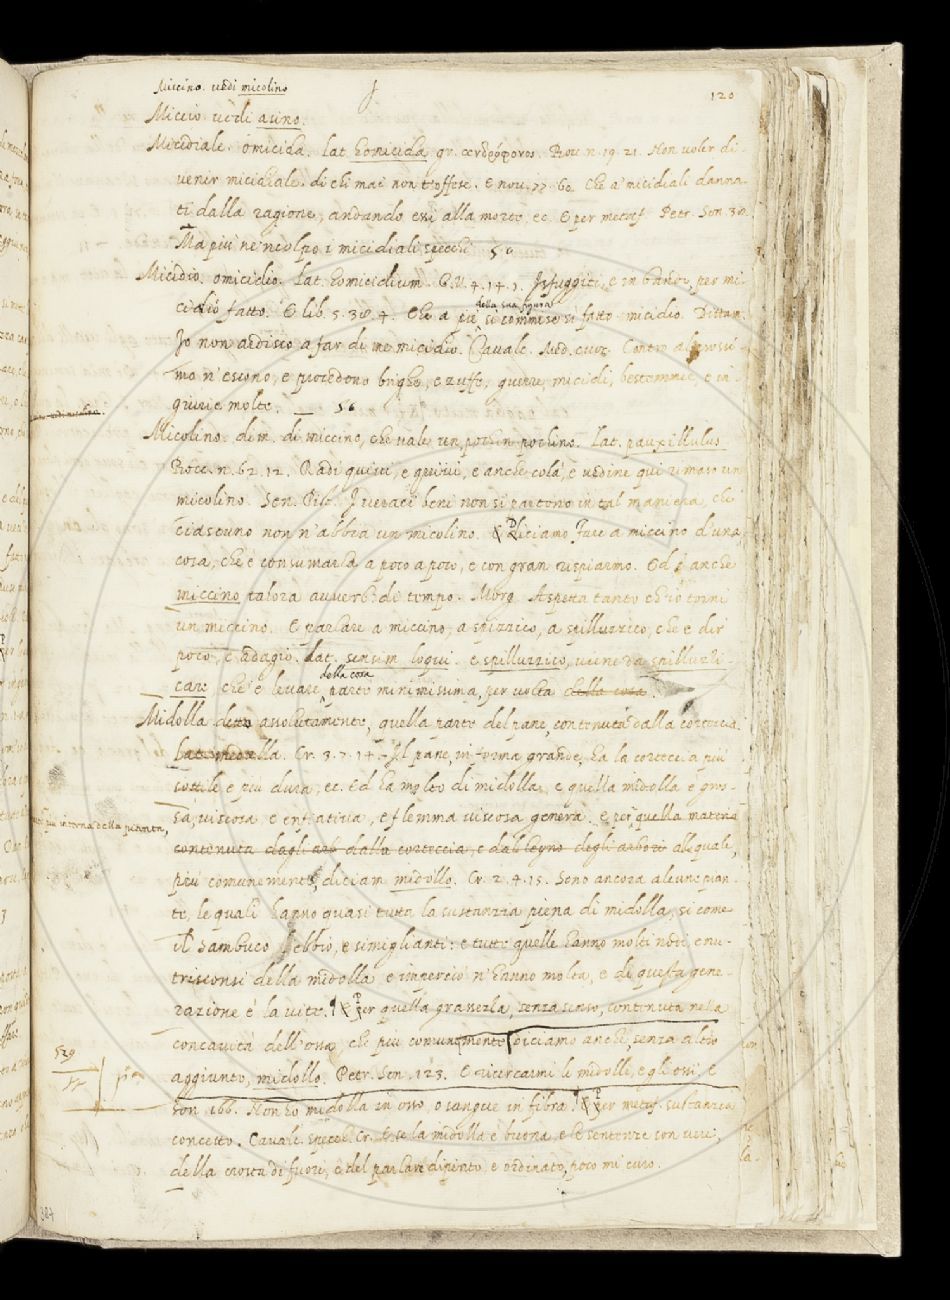 Miccino. vedi micolino
120
Miccio vedi asino.
Micidiale. omicida. lat. homicida gr. ἀνδρόφονος. Bocc. n. 19. 21. Non voler di-
venir micidiale di chi mai non t'offese. E nov. 77. 60. Che a' micidiali danna-
ti dalla ragione, andando essi alla morte, ec. E per metaf. Petr. Son. 38.
Ma più ne 'ncolpo i micidiali specchi
Micidio. omicidio. Lat. homicidium. G.V. 4. 14. 1. fuggiti, e in bando per mi-
cidio fatto. E lib. 5. 30. 4. Che a piè della sua figura si commise si fatto micidio. Dittam.
Io non ardisco a far di me micidio. Cavalc. Med. cuor. Contro al prossi-
mo n'escono, e procedono brighe, e zuffe, guerre, micidi, bestemmie, e in-
giurie molte.
Micolino. dim. di miccino, che vale un pochin pochino. Lat. pauxillulus
Bocc. n. 62. 12. Radi quivi, e quivi, e anche colà, e vedine qui rimaso un
micolino. Sen. Pist. I veraci beni non si partono in tal maniera, che
ciascuno non n'abbia un micolino. Diciamo fare a miccino d'una
cosa, che è consumarla a poco a poco, e con gran risparmo. Ed è anche
miccino talora avverb. di tempo. Morg. Aspetta tanto ch'io torni
un miccino. E parlare a miccino, a spizzico, a spilluzzico, che è dir
poco, e adagio. lat. sensim loqui. e spilluzzico, viene da spilluzzi-
care che è levare della cosa parte minimissima, per volta della cosa.
Midolla detto assolutamente, quella parte del pane, contenuta dalla corteccia.
Lat. medulla. Cr. 3. 7. 14. Il pane, in forma grande, ha la corteccia più
sottile e più dura, ec. Ed ha molto di midolla, e quella midolla è gros-
sa, viscosa e enfiativa, e flemma viscosa genera. e per quella materia
più interna della pianta,
contenuta dagli arb dalla corteccia, e dal legno degli arbori alle quali,
più comunemente, diciam midollo. Cr. 2. 4. 15. Sono ancora alcune pian-
te, le quali hanno quasi tutta la sustanzia piena di midolla, si come
il Sambuco Ebbio, e simiglianti: e tutte quelle hanno molti nodi, e nu-
trisconsi della midolla e imperciò n'hanno molta, e di questa gene-
razione è la vite. Per quella granezla, senza senso, contenuta nella
concavità dell'ossa, che più comunemente diciamo anche, senza altro
aggiunto, midollo. Petr. Son. 123. E ricercarmi le midolle, e gli ossi, E
529
son. 166. Non ho midolla in osso, o sangue in fibra. Per metaf. sustanzia
concetto. Cavalc. specch. Cr. E se la midolla è buona e le sentenze son vere,
della crosta di fuori, e del parlare dipinto, e ordinato, poco mi curo.